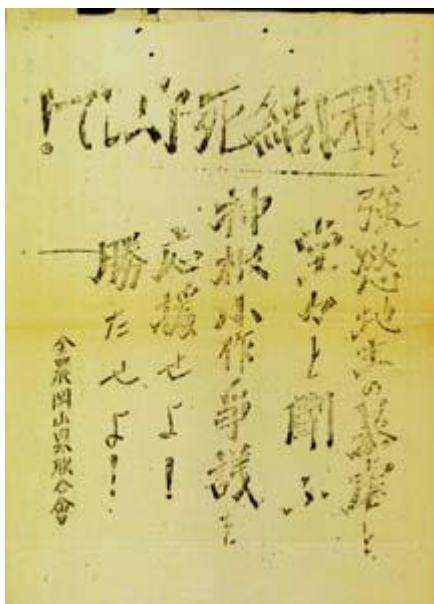 団結死
強慾地主の暴虐と
堂々と闘ふ
神根小作爭議を
応援せよ！
勝たせよ！
全農岡山县聯合會